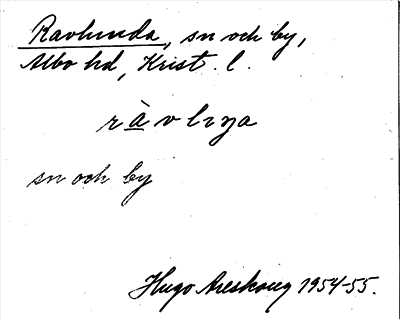 Ravlunda, sn och by,
Albo hd, Krist. l.
ràvlıŋa
sn och by
Hugo Areskoug 1954-55.